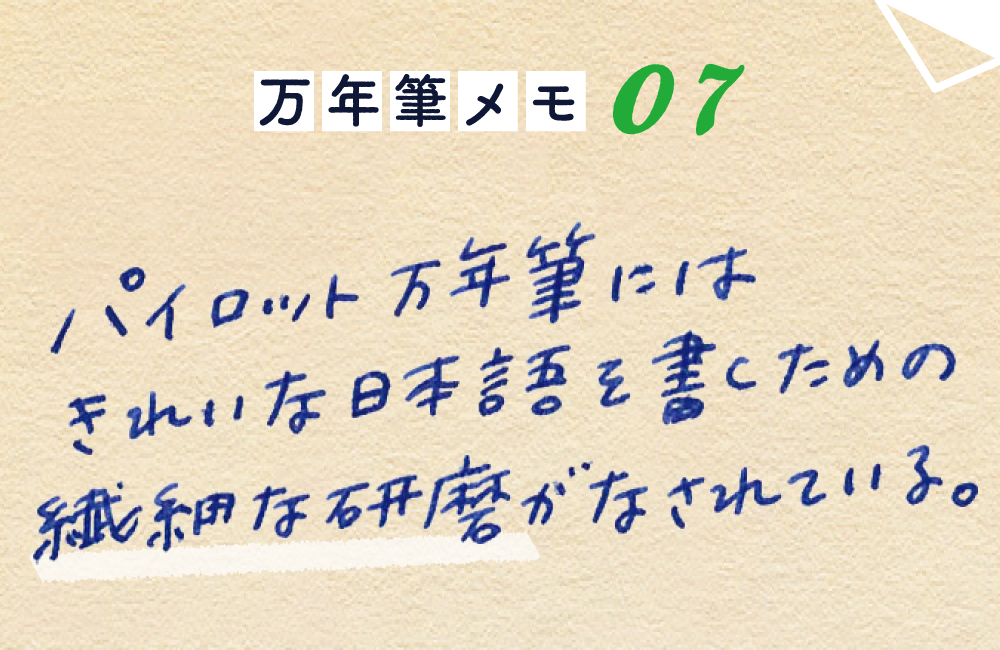 万年筆メモ 07
パイロット万年筆には
きれいな日本語を書くための
繊細な研磨がなされている。